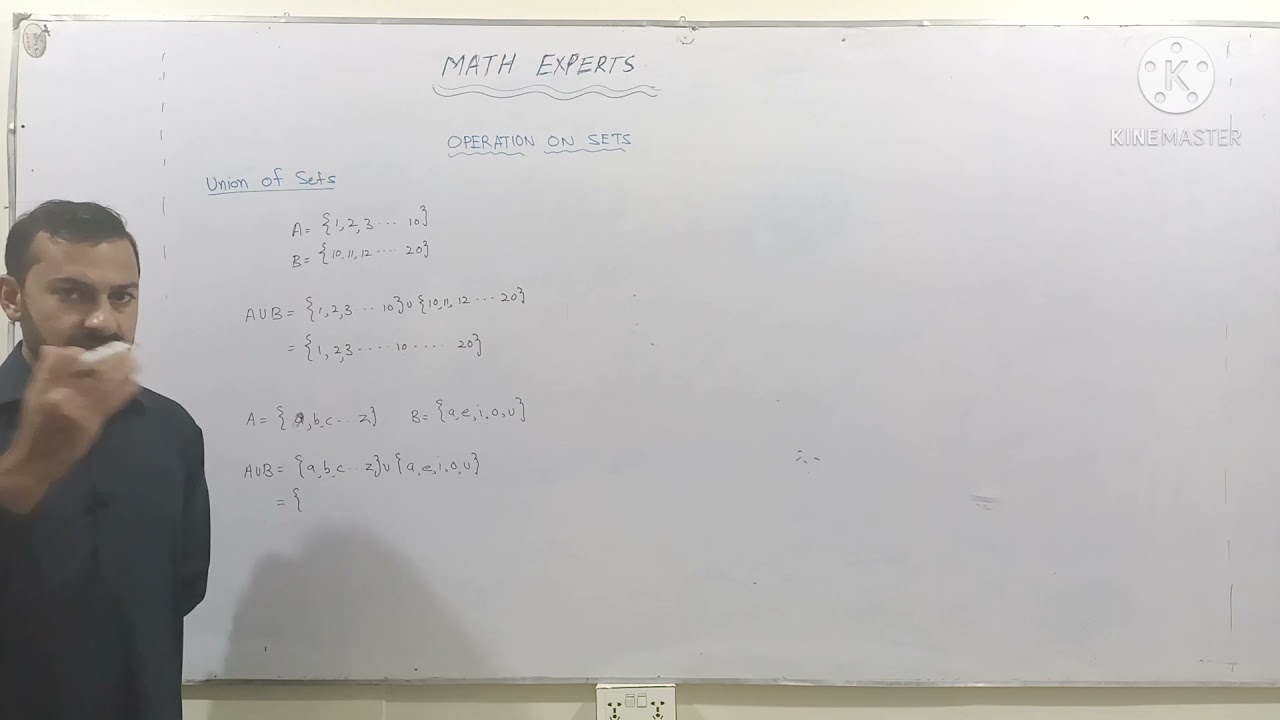 MATH EXPERTS
KINEMASTER
OPERATION ON SETS
Union of Sets
A = {1, 2, 3 ... 10}
B = {10, 11, 12 .... 20}
A∪B = {1, 2, 3 ... 10} ∪ {10, 11, 12 ... 20}
= {1, 2, 3 ..... 10 ..... 20}
A = { a, b, c ... z} B = {a, e, i, o, u}
A∪B = {a, b, c ... z} ∪ {a, e, i, o, u}
= {